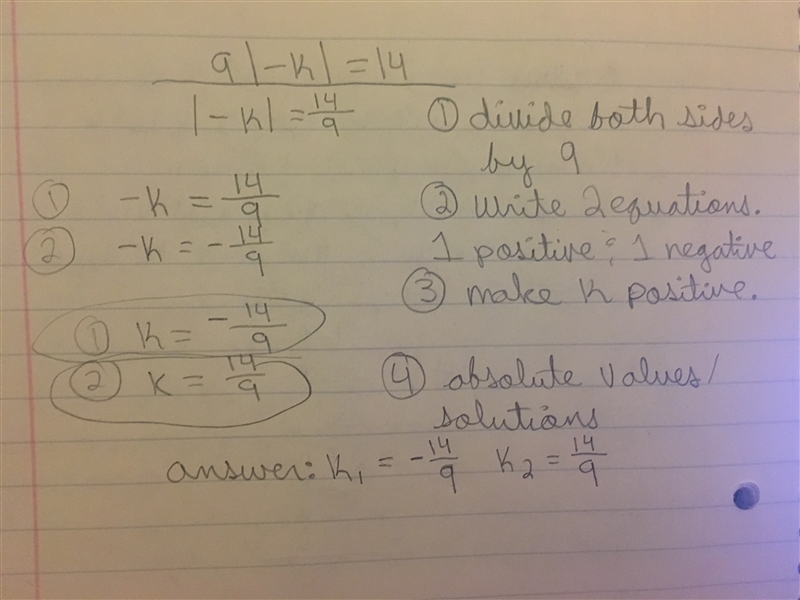 9 |-k| = 14
|-k| = 14/9
① divide both sides
by 9
① -k = 14/9
② write 2 equations.
② -k = -14/9
1 positive & 1 negative
③ make k positive.
① k = -14/9
② k = 14/9
④ absolute values/
solutions
answer: k₁ = -14/9 k₂ = 14/9